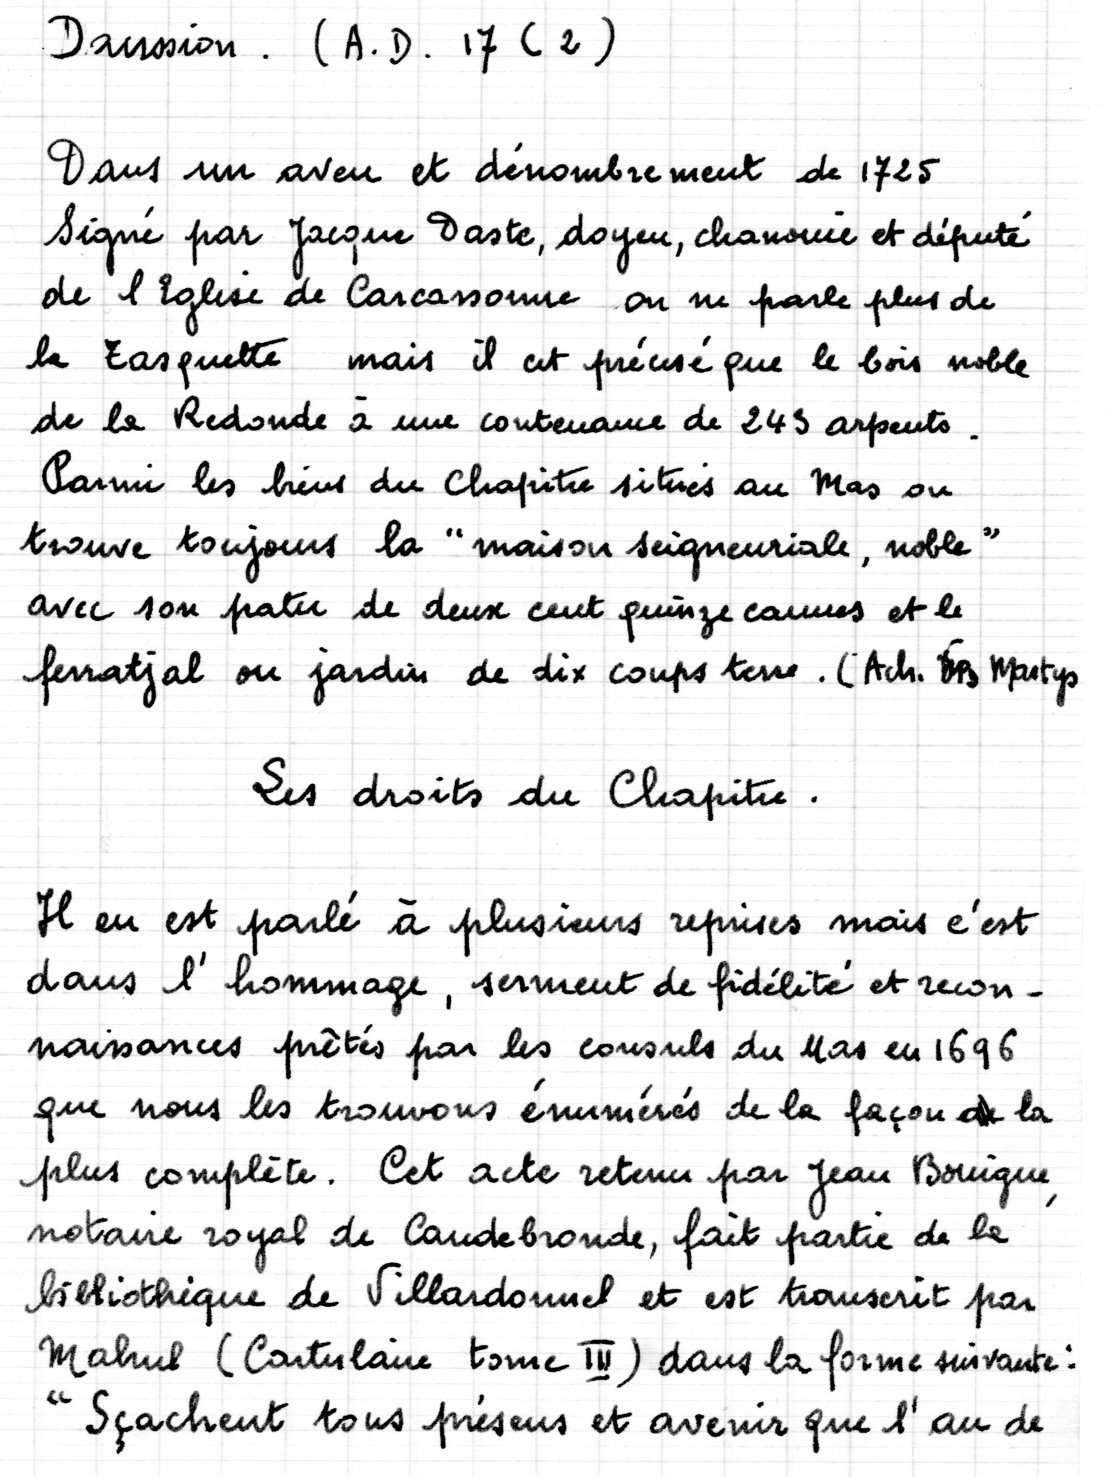 Daussion. (A.D. 17 (2)
Dans un aveu et dénombrement de 1725
Signé par Jacque Daste, doyen, chanoine et député
de l'Eglise de Carcassonne on ne parle plus de
la Tasquette mais il est précisé que le bois noble
de la Redonde à une contenance de 243 arpents.
Parmi les biens du Chapitre situés au Mas on
trouve toujours la "maison seigneuriale, noble"
avec son patu de deux cent quinze cannes et le
ferratjal ou jardin de dix coups terre. (Ach. Martys
Les droits du Chapitre.
Il en est parlé à plusieurs reprises mais c'est
dans l'hommage, serment de fidélité et recon-
naissances prêtés par les consuls du Mas en 1696
que nous les trouvons énumérés de la façon la
plus complète. Cet acte retenu par Jean Bouigue,
notaire royal de Caudebronde, fait partie de la
bibliothèque de Villardonnel et est transcrit par
Mahul (Cartulaire tome III) dans la forme suivante:
"Sçachent tous présens et avenir que l'an de